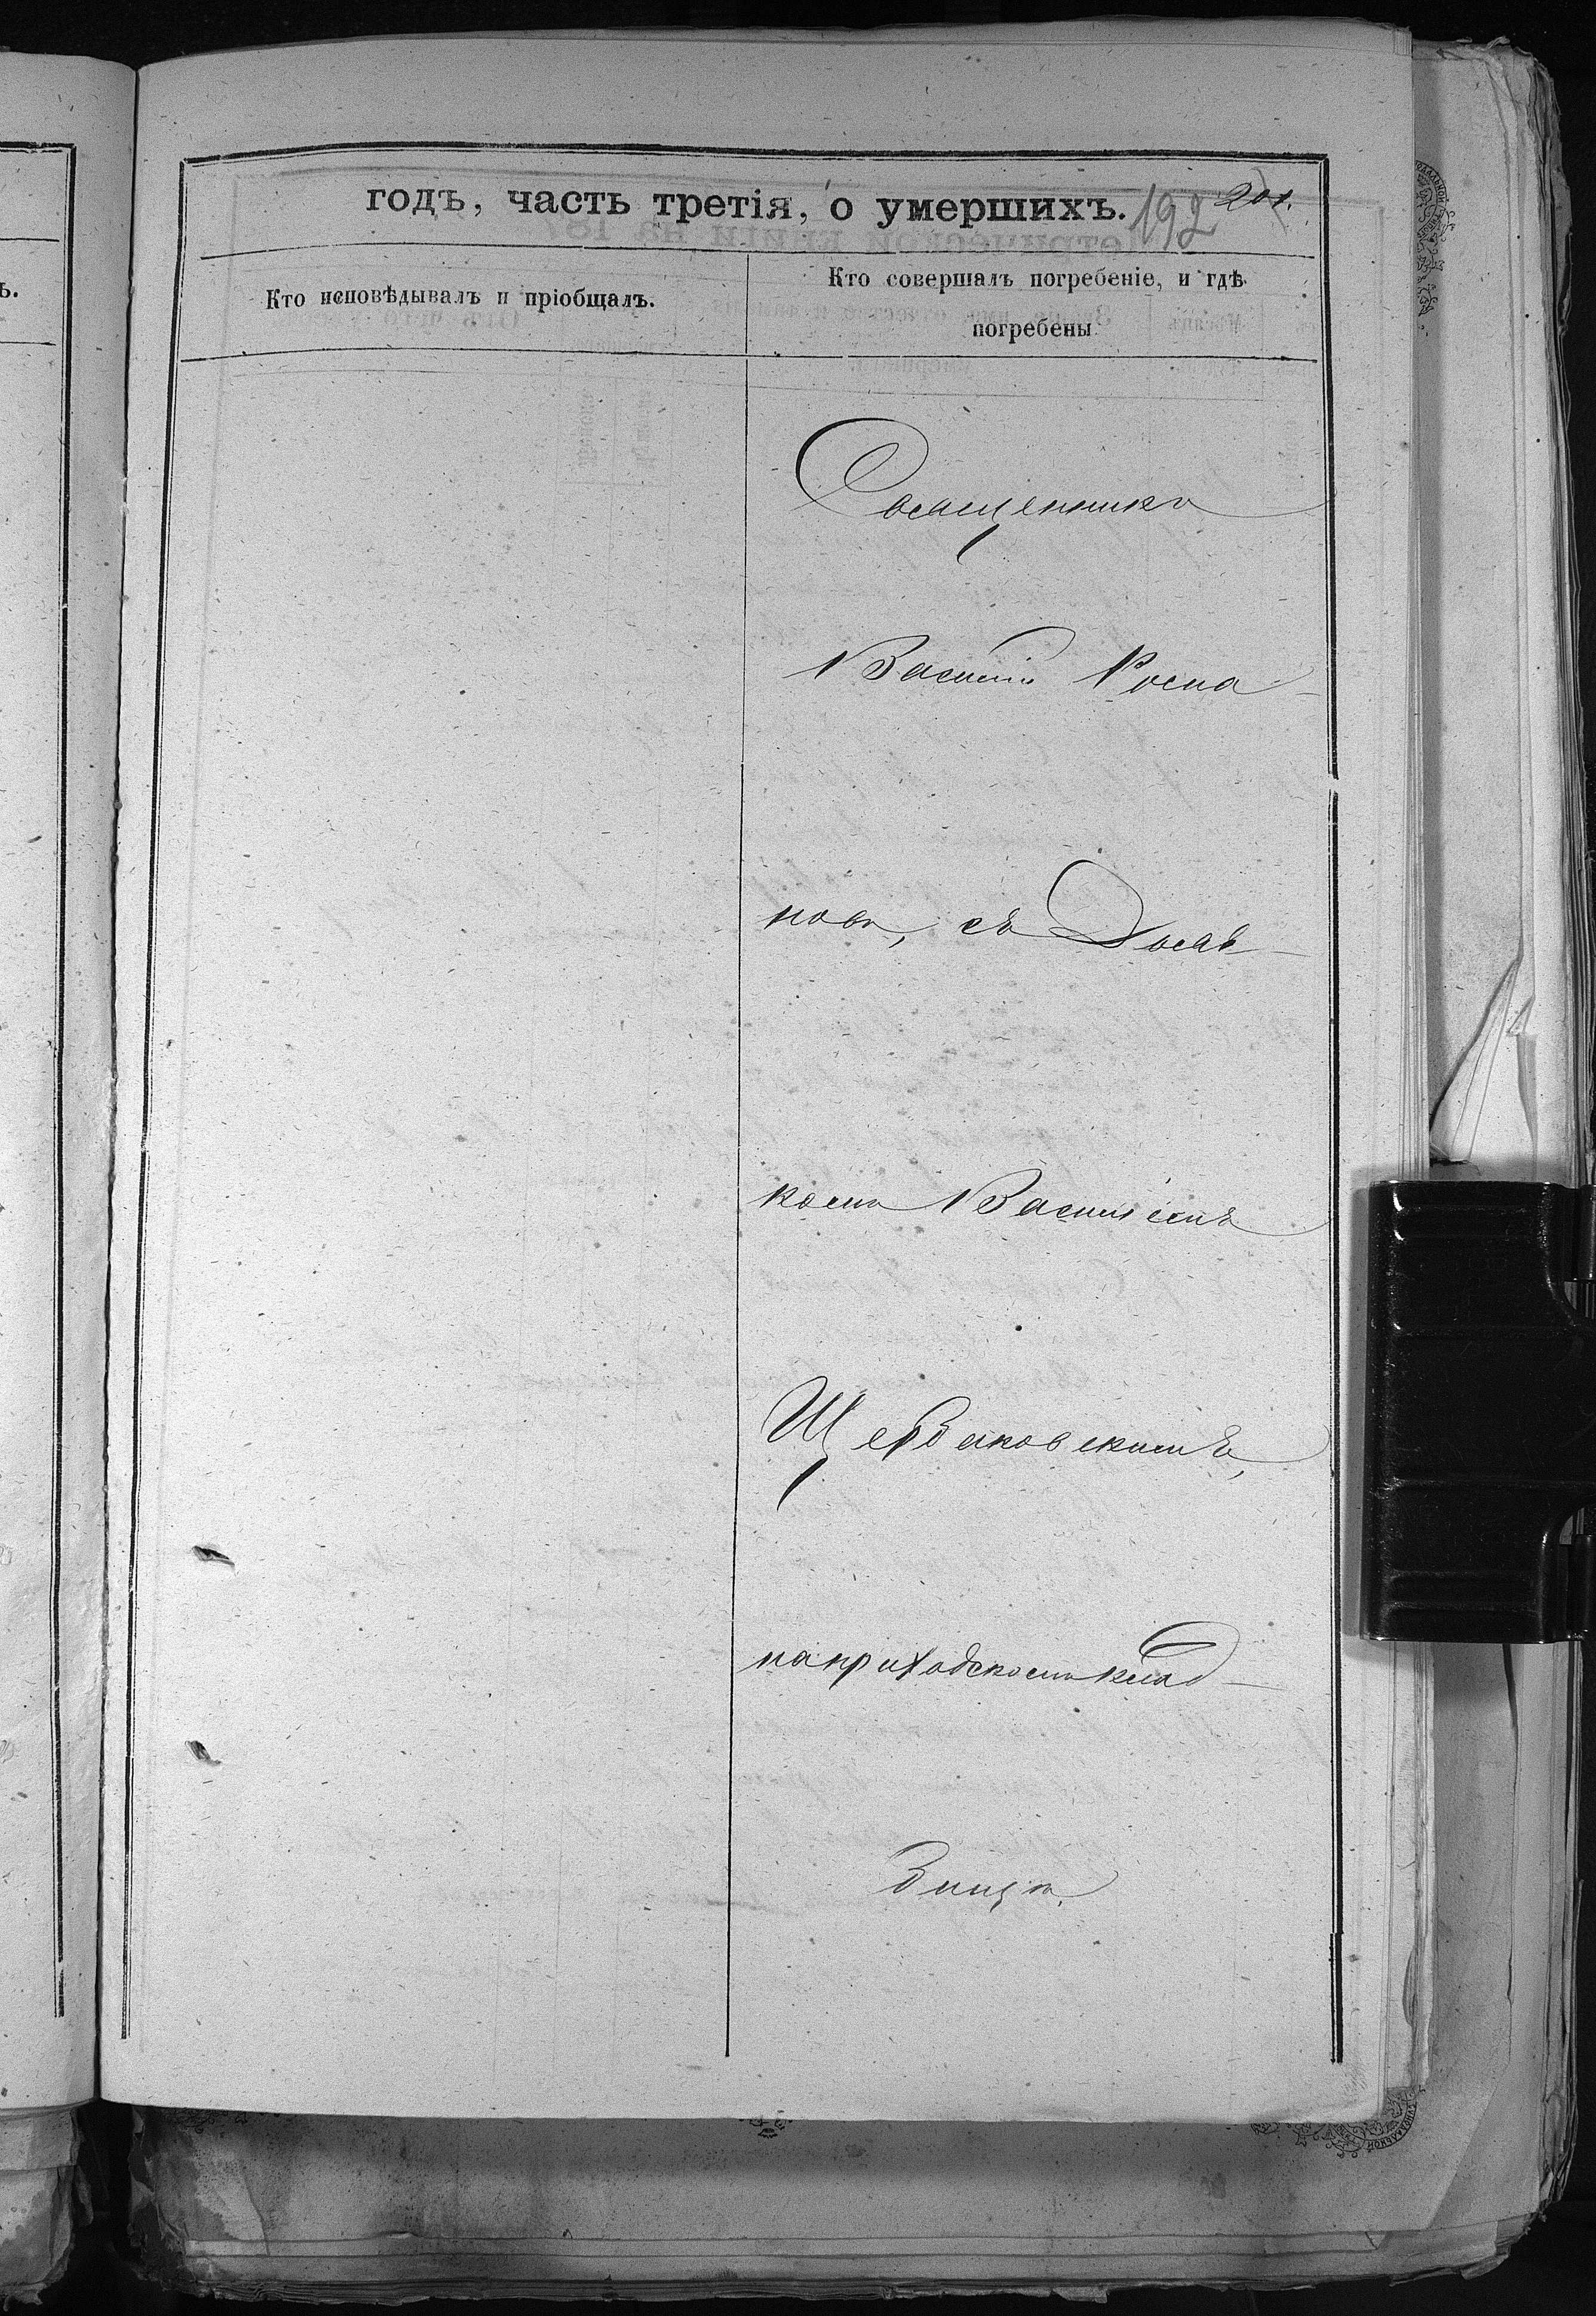 годъ, часть третія, о умершихъ. 192 201.
Кто исповѣдывалъ и пріобщалъ.
Кто совершалъ погребеніе, и гдѣ
погребены
Священникъ
Василій Рома-
новъ, съ Дьяч-
комъ Василіемъ
Щербаковскимъ,
на приходскомъ клад-
бищѣ.